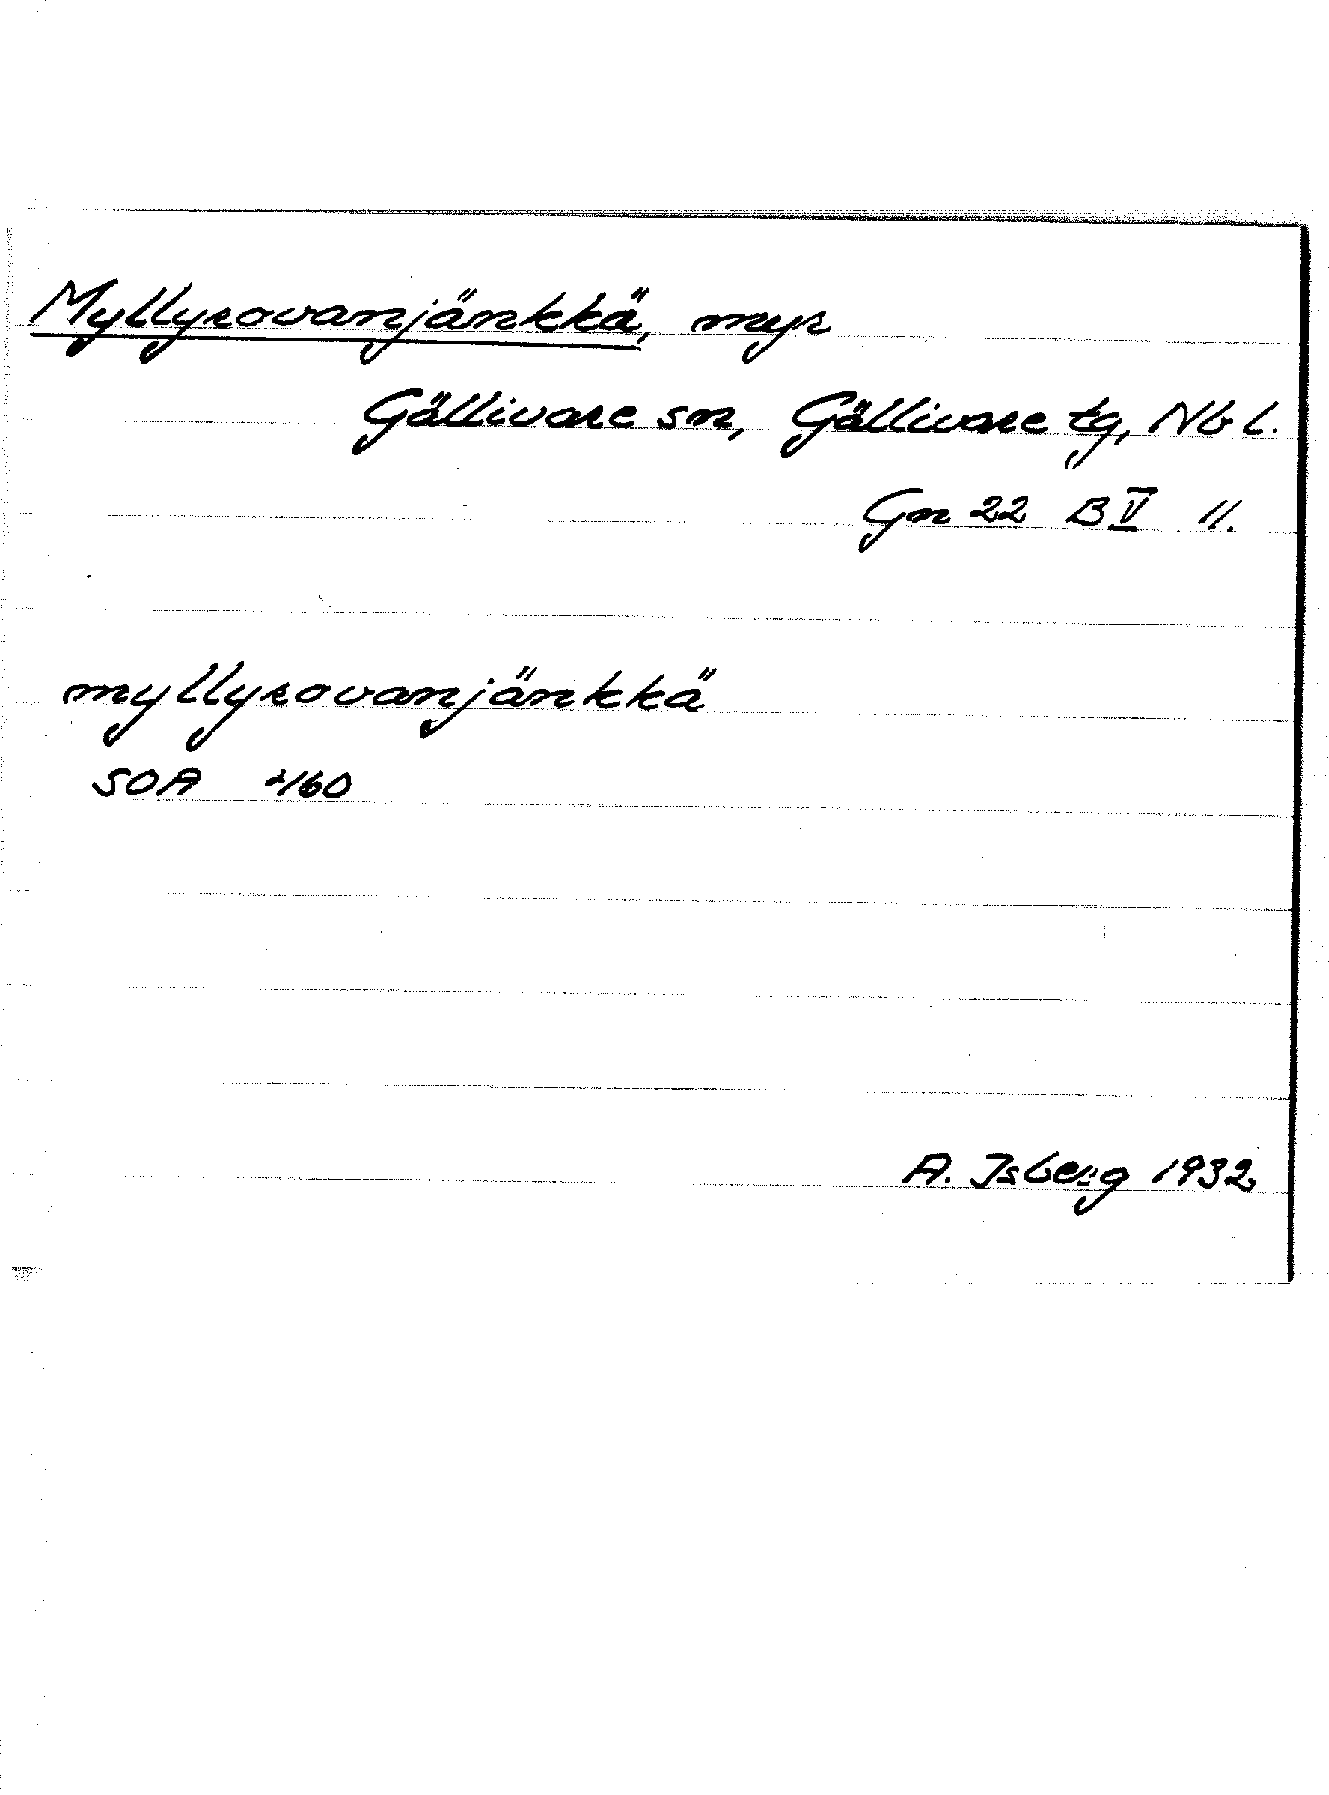 Myllyrovanjänkkä, myr
Gällivare sn, Gällivare tg, Nb l.
Gn 22 B V 11.
myllyrovanjänkkä
SOA 2160
A. Isberg 1932